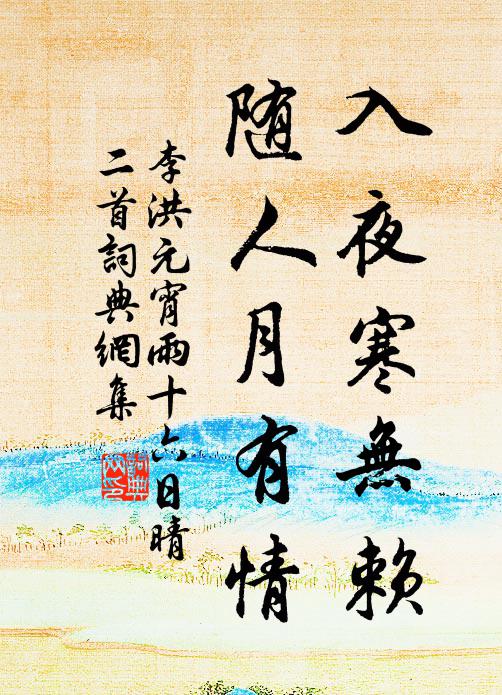 入夜寒無賴
随人月有情
李洪元宵雨十六日晴
二首詞典網集